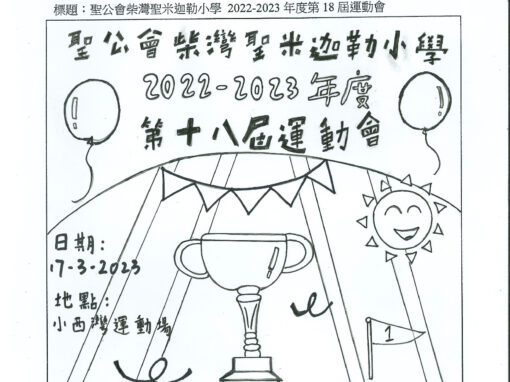 標題：聖公會柴灣聖米迦勒小學 2022-2023 年度第 18 屆運動會
聖公會柴灣聖米迦勒小學
2022-2023 年度
第十八屆運動會
日期:
17-3-2023
地點:
小西灣運動場
1